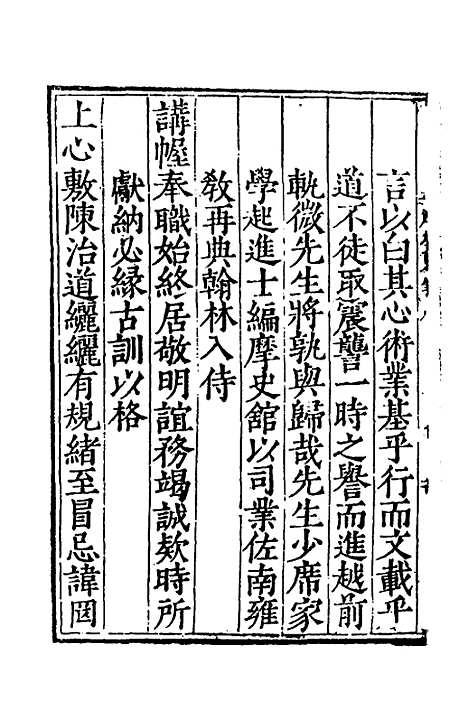 言以白其心術業基乎行而文載乎
道不徒取震讋一時之譽而進越前
軌微先生將孰與歸哉先生少席家
學起進士編歷史館以司業佐南雍
敎再典翰林入侍
講幄奉職始終居敬明誼務竭誠欵時所
獻納必緣古訓以格
上心敷陳治道纚纚有規緒至冒忌諱罔